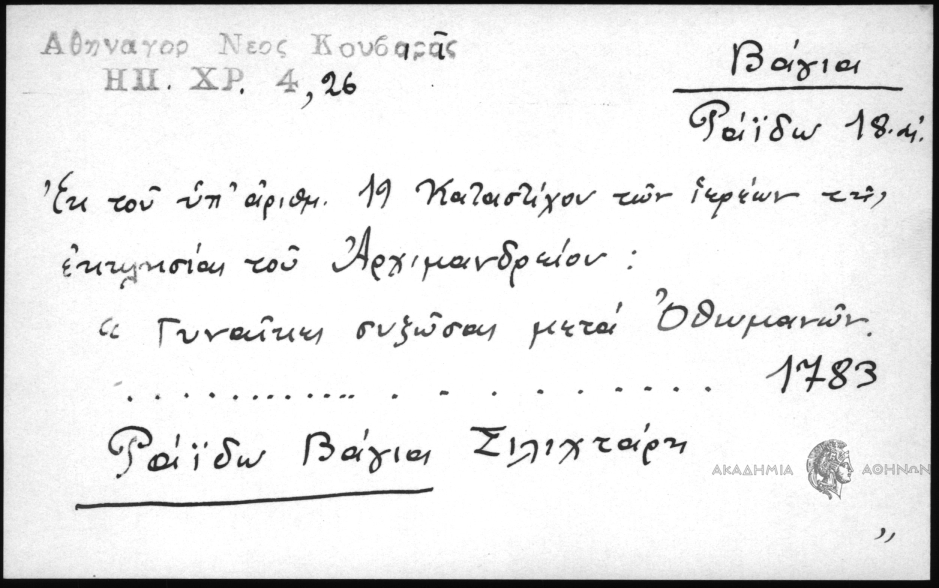 Αθηναγορ Νεος Κουβαρᾶς
ΗΠ. ΧΡ. 4, 26
Βάγια
Ράϊδω 18. αἰ.
Ἐκ τοῦ ὑπ' ἀριθμ. 19 Καταστίχου τῶν ἱερέων τῆς
ἐκκλησίας τοῦ Ἀρχιμανδρείου :
“ Γυναῖκες συζῶσαι μετά Ὀθωμανῶν.
. . . . . . . . . . . . . . . . . . . . . 1783
Ράϊδω Βάγια Σιλιχτάρη
ΑΚΑΔΗΜΙΑ ΑΘΗΝΩΝ
”